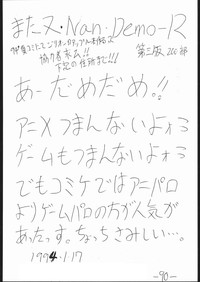 また又・Nan・Demo-R
第三版 200部
協力者求ム!!
下記の住所まで!!!
あーだめだめ。!!
アニメつまんないよォゥ
ゲームもつまんないよォゥ
でもコミケではアニパロ
よりゲームパロの方が人気が
あったっす。ちょっちさみしい…。
1994.1.17
-90-